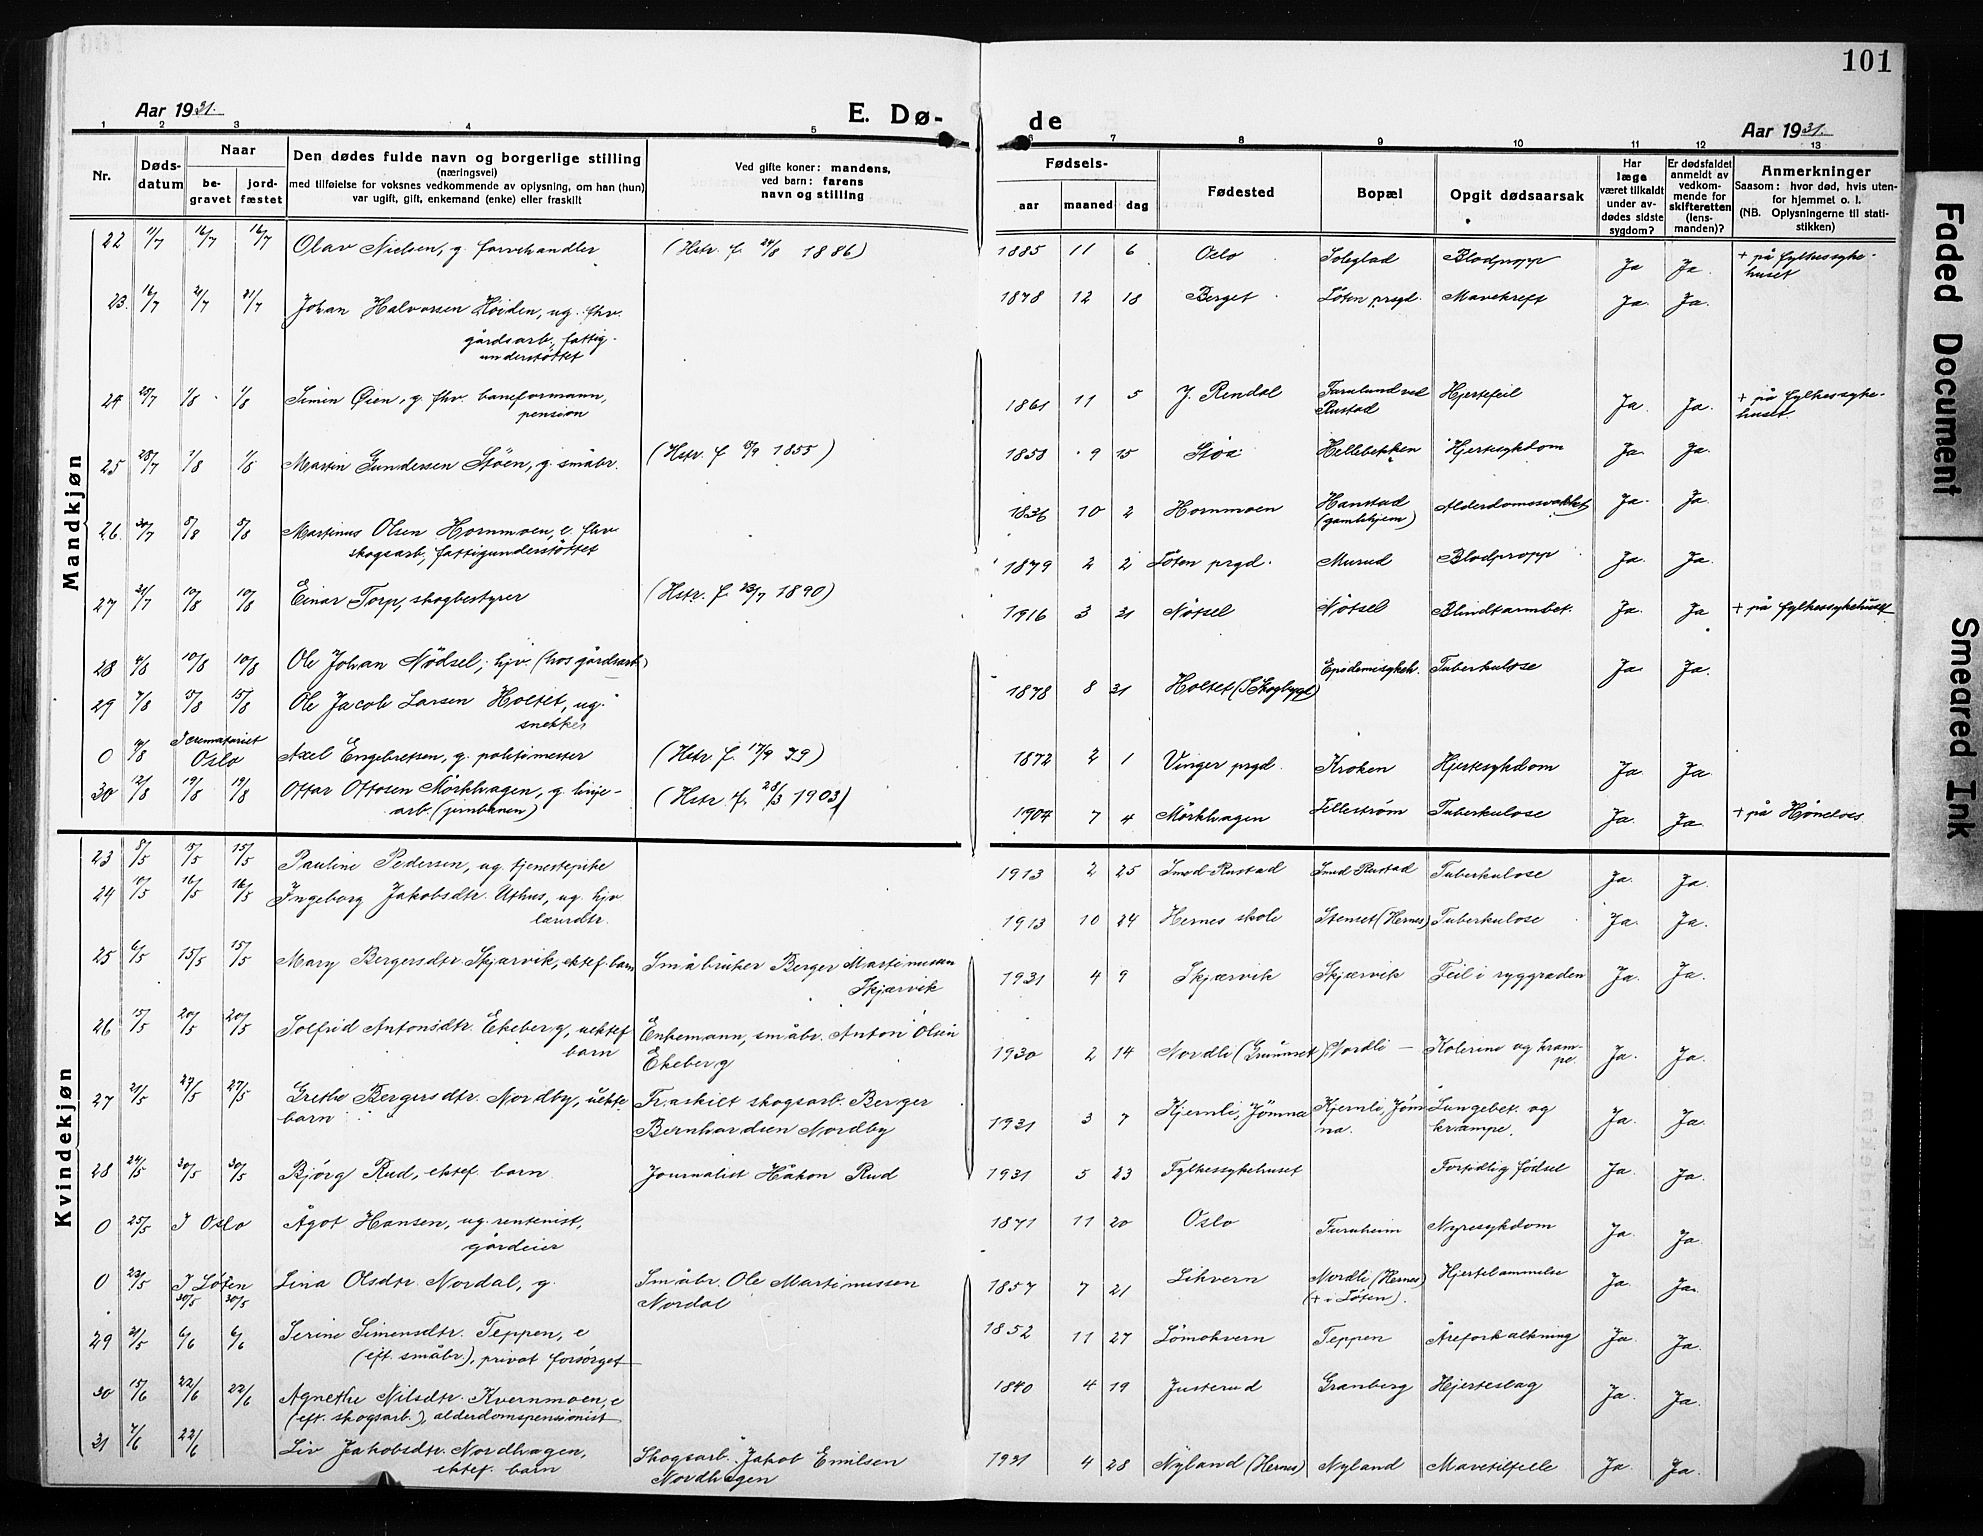 101
Aar 1931.
E. Dø-
de
Aar 1931.
1 2 3 4 5 6 7 8 9 10 11 12 13
Nr.
Døds-
datum
Naar
be-
gravet
jord-
fæstet
Den dødes fulde navn og borgerlige stilling
(næringsvei)
med tilføielse for voksnes vedkommende av oplysning, om han (hun)
var ugift, gift, enkemand (enke) eller fraskilt
Ved gifte koner: mandens,
ved barn: farens
navn og stilling
Fødsels-
aar maaned dag
Fødested
Bopæl
Opgit dødsaarsak
Har
læge
været tilkaldt
under av-
dødes sidste
sygdom?
Er dødsfaldet
anmeldt av
vedkom-
mende for
skifteretten
(lens-
manden)?
Anmerkninger
Saasom: hvor død, hvis uten-
for hjemmet o. l.
(NB. Oplysningerne til stati-
stikken)
Mandkjøn
22 11/7 16/7 16/7 Olav Nielsen, g. farvehandler (Hstr. f. 24/8 1886) 1885 11 6 Oslo Solglad Blodpropp Ja Ja. + på fylkessyke-
huset
23. 16/7 21/7 21/7 Johan Halvorsen Høiden, ug. fhv. 1878 12 18 Berget Løten prgd. Mavekreft Ja. Ja.
gårdsarb., fattig-
understøttet
24 25/7 1/8 1/8 Simen Øien, g. fhv. baneformann, 1861 11 5 Y. Rendal Furulund ved Hjertefeil Ja. Ja. + på fylkessyke-
pension Rustad huset.
25 28/7 1/8 1/8 Martin Gundersen Støen, g. småbr. (Hstr. f. 15/9 1855) 1858 9 15 Støa Hellebekken Hjertesykdom Ja. Ja.
26. 30/7 5/8 5/8 Martinus Olsen Hornmoen, e. fhv. 1836 10 2 Hornmoen Hanstad Alderdomssvakhet Ja. Ja
skogsarb., fattigunderstøttet (gamlehjem)
27 31/7 10/8 10/8 Einar Torp, skogbestyrer (Hstr. f. 23/7 1890) 1879 2 2 Løten prgd. Murud Blodpropp Ja. Ja.
28 4/8 10/8 10/8 Ole Johan Nødsel, hjv. (hos gårdsarb.) 1916 3 31 Nøtsel Nøtsel Blindtarmbet. Ja. Ja + på fylkessykehuset
29 7/8 15/8 15/8 Ole Jacob Larsen Holtet, ug. 1878 8 31 Holtet (S. Skogbygd) Epidemisykeh. Tuberkulose Ja. Ja.
snekker
0 9/8 I crematoriet
Oslo Axel Engebretsen, g. politimester (Hstr. f. 17/9 79) 1872 2 1 Vinger prgd. Kroken Hjertesykdom Ja. Ja.
30 12/8 19/8 19/8 Ottar Ottosen Mørkhagen, g. linje- (Hstr. f. 28/3 1903) 1904 7 4 Mørkhagen Lellestrøm Tuberkulose Ja. Ja. + på Hønefoss
arb. (jernbanen)
Kvindekjøn
23 8/5 15/5 15/5 Pauline Pedersen, ug. tjenestepike 1913 2 25 Smed-Rustad Smed Rustad Tuberkulose Ja. Ja.
24 10/5 16/5 16/5 Ingeborg Jakobsdtr. Uthus, ug. hjv. 1913 10 24 Hernes skole Stenset (Hernes) Tuberkulose Ja. Ja.
lærerdtr.
25 6/5 15/5 15/5 Mary Bergersdtr. Skjærvik, ektef. barn Småbruker Berger Martinussen 1931 4 9 Skjærvik Skjærvik Feil i ryggraden Ja. Ja.
Skjærvik
26 15/5 20/5 20/5 Solfrid Antonsdtr. Ekeberg, uektef Enkemann, småbr. Anton Olsen 1930 2 14 Nordli (Grønset) Nordli — Kolerine og kram- Ja. Ja.
barn Ekeberg pe.
27 21/5 27/5 27/5 Grethe Bergersdtr. Nordby, uekte Fraskilt skogsarb. Berger 1931 3 7 Kjernli, Jømna Kjernli, Jøm- Lungebet. og Ja. Ja.
barn Bernhardsen Nordby na. krampe.
28 24/5 30/5 30/5 Bjørg Rud, ektef. barn Journalist Håkon Rud 1931 5 23 Fylkessykehuset Fortidlig fødsel Ja. Ja
0 25/5 I Oslo Ågot Hansen, ug. rentenist, 1871 11 20 Oslo Furuheim Nyresykdom Ja. Ja.
gårdeier
0 23/5 I Løten
30/5 30/5 Lina Olsdtr. Nordal, g. Småbr. Ole Martinussen 1857 7 21 Likvern Nordli (Hernes) Hjertelammelse Ja. Ja.
Nordal (+ i Løten).
29 31/5 6/6 6/6 Serine Simensdtr. Teppen, e 1852 11 27 Lømokvern Teppen Åreforkalkning Ja. Ja.
(eft. småbr.), privat forsørget
30 15/6 22/6 22/6 Agnethe Nilsdtr. Kvernmoen, e 1840 4 19 Justerud Granberg Hjerteslag Ja. Ja.
(eft. skogsarb.), alderdomspensionist
31 7/6 22/6 Liv Jakobsdtr. Nordhagen, Skogsarb. Jakob Emilsen 1931 4 28 Nyland (Hernes) Nyland Mavetilfelle Ja. Ja.
ektef. barn Nordhagen
Faded Document
Smeared Ink